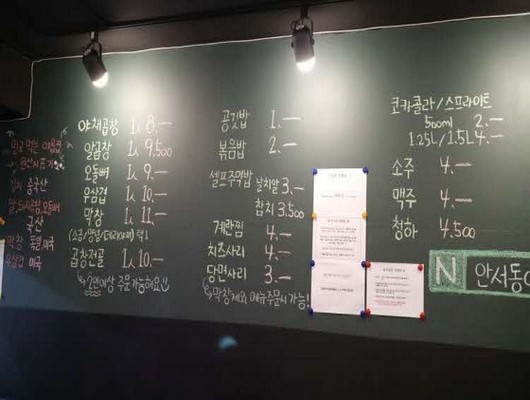 야채곱창 1人 8.—
알곱창 1人 9.500
오돌뼈 1人 9.—
우삼겹 1人 10.—
막창 1人 11.—
(소금/양념/데리야끼) 택1
곱창전골 1人 10.—
↳ 2인이상 주문가능해요
공깃밥 1.—
볶음밥 2.—
셀프주먹밥 날치알 3.—
참치 3.500
계란찜 4.—
치즈사리 4.—
당면사리 3.—
↳ 막창 제외 메뉴주문시 가능!
코카콜라/스프라이트
500ml 2.—
1.25L/1.5L 4.—
소주 4.—
맥주 4.—
청하 4.500
N 안서동
믿고 먹는
원산지표기
중국산
국산
막창
미국
우삼겹 미국